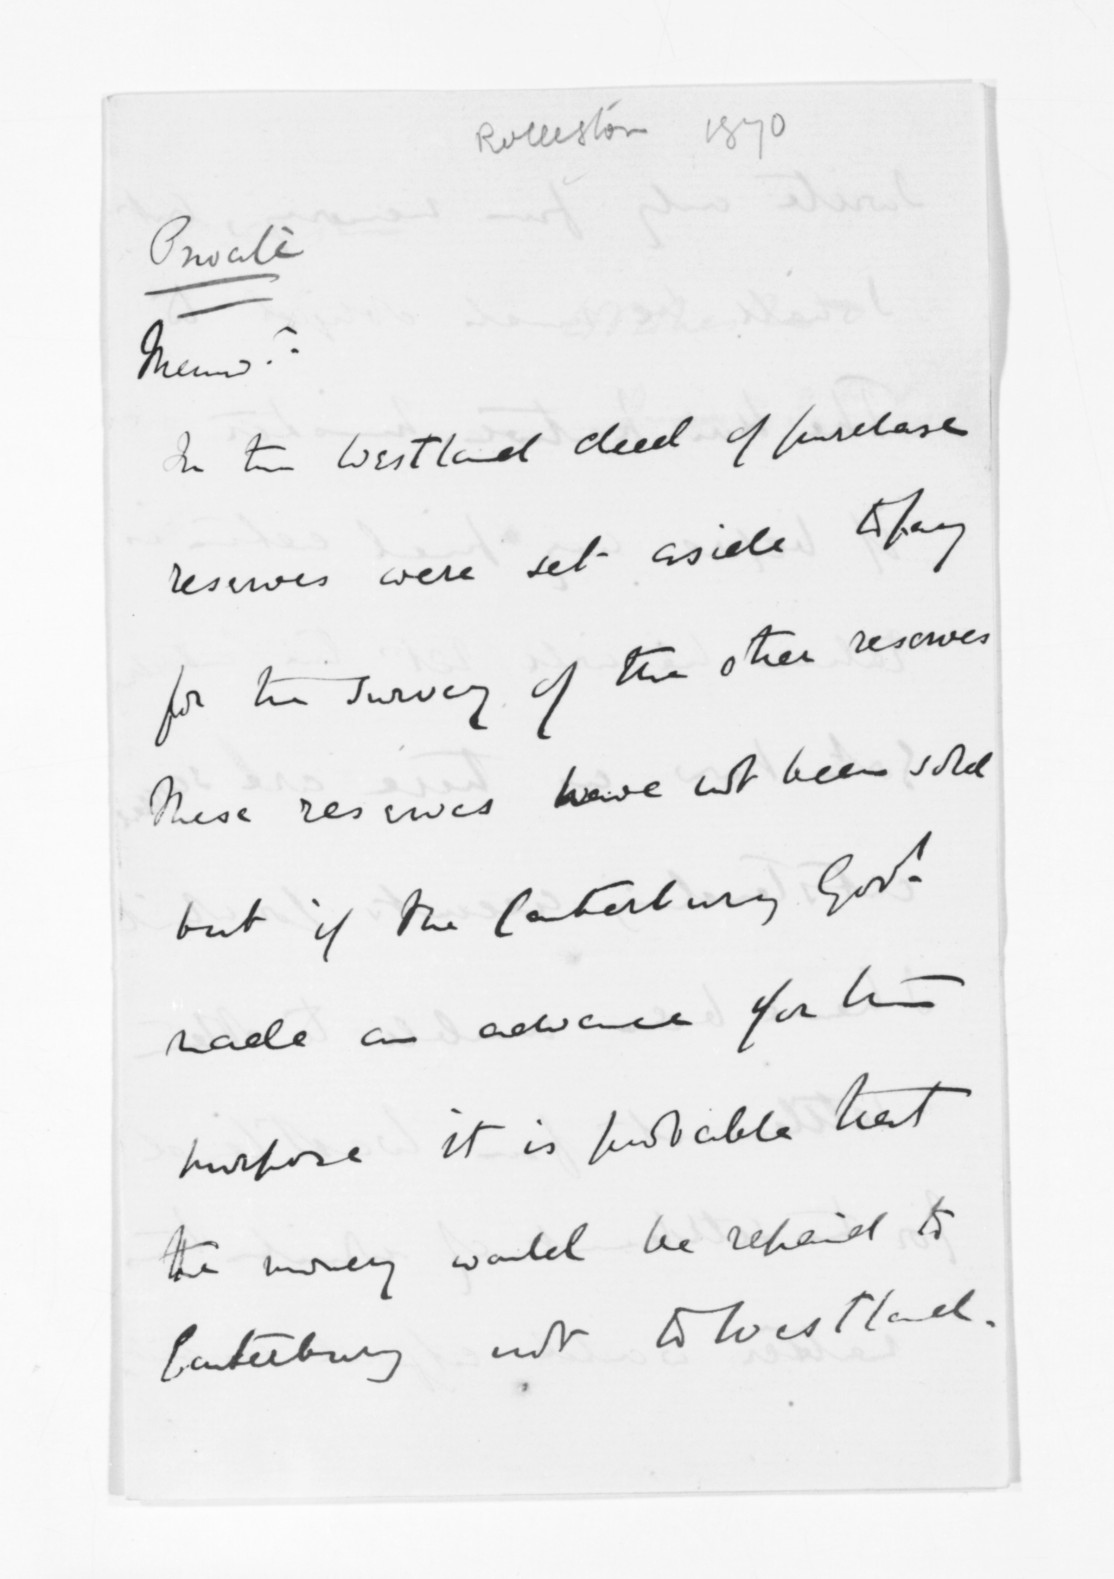 Rolleston 1870
Private
Memo.
In the Westland deed of purchase
reserves were set aside to pay
for the survey of the other reserves
these reserves have not been sold
but if the Canterbury Govt.
made an advance for this
purpose it is probable that
the money would be repaid to
Canterbury not to Westland.